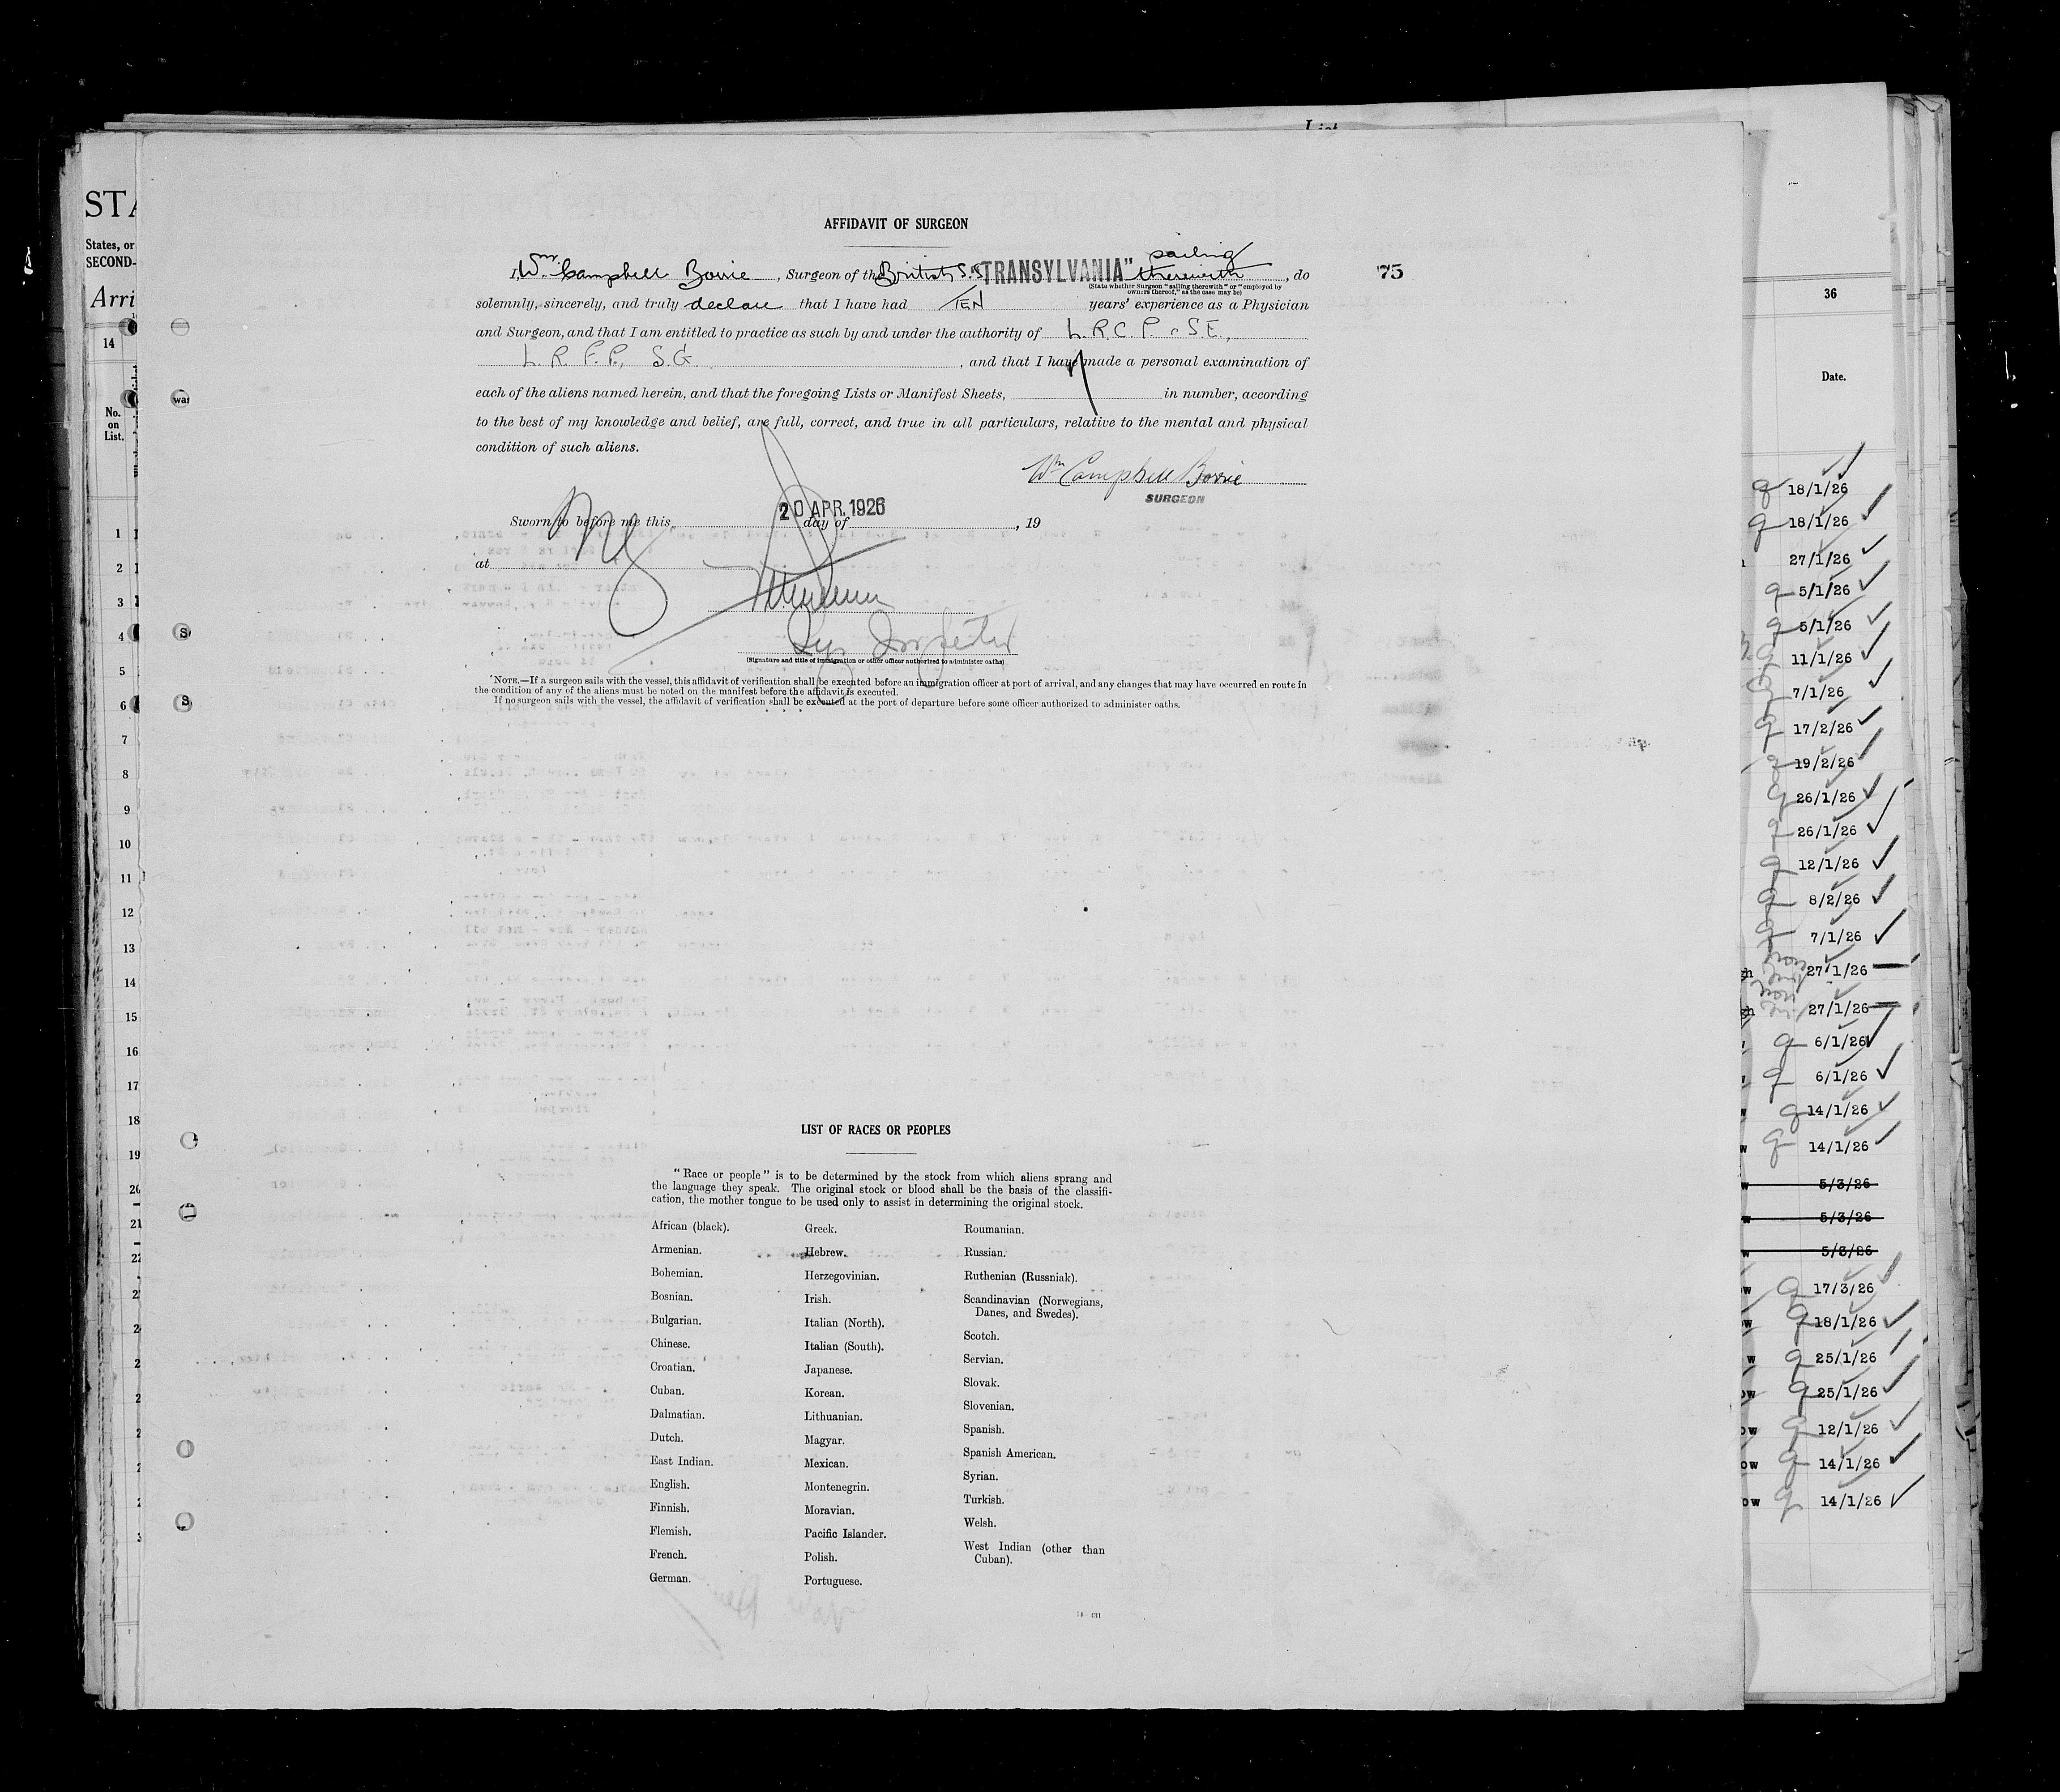 List
STA
States, or
SECOND-
Arri
14
No.
on
List.
1
2
3
4
5
6
7
8
9
10
11
12
13
14
15
16
17
18
19
20
21
22
AFFIDAVIT OF SURGEON
I, Wm. Campbell Bowie, Surgeon of the British S.S. "TRANSYLVANIA" sailing therewith, do
(State whether Surgeon "sailing therewith" or "employed by
owners thereof," as the case may be)
75
solemnly, sincerely, and truly declare that I have had TEN years' experience as a Physician
and Surgeon, and that I am entitled to practice as such by and under the authority of L.R.C.P. & S.E.,
L.R.F.P., S.G. , and that I have made a personal examination of
each of the aliens named herein, and that the foregoing Lists or Manifest Sheets, 1 in number, according
to the best of my knowledge and belief, are full, correct, and true in all particulars, relative to the mental and physical
condition of such aliens.
Wm Campbell Bowie
SURGEON
Sworn to before me this 20 APR. 1926 day of , 19
at NY
Insp
(Signature and title of immigration or other officer authorized to administer oaths)
NOTE.—If a surgeon sails with the vessel, this affidavit of verification shall be executed before an immigration officer at port of arrival, and any changes that may have occurred en route in
the condition of any of the aliens must be noted on the manifest before the affidavit is executed.
If no surgeon sails with the vessel, the affidavit of verification shall be executed at the port of departure before some officer authorized to administer oaths.
LIST OF RACES OR PEOPLES
"Race or people" is to be determined by the stock from which aliens sprang and
the language they speak. The original stock or blood shall be the basis of the classifi-
cation, the mother tongue to be used only to assist in determining the original stock.
African (black).
Armenian.
Bohemian.
Bosnian.
Bulgarian.
Chinese.
Croatian.
Cuban.
Dalmatian.
Dutch.
East Indian.
English.
Finnish.
Flemish.
French.
German.
Greek.
Hebrew.
Herzegovinian.
Irish.
Italian (North).
Italian (South).
Japanese.
Korean.
Lithuanian.
Magyar.
Mexican.
Montenegrin.
Moravian.
Pacific Islander.
Polish.
Portuguese.
Roumanian.
Russian.
Ruthenian (Russniak).
Scandinavian (Norwegians,
Danes, and Swedes).
Scotch.
Servian.
Slovak.
Slovenian.
Spanish.
Spanish American.
Syrian.
Turkish.
Welsh.
West Indian (other than
Cuban).
36
Date.
18/1/26
18/1/26
27/1/26
5/1/26
5/1/26
11/1/26
7/1/26
17/2/26
19/2/26
26/1/26
26/1/26
12/1/26
8/2/26
7/1/26
27/1/26
27/1/26
6/1/26
6/1/26
14/1/26
14/1/26
5/3/26
5/3/26
5/3/26
17/3/26
18/1/26
25/1/26
25/1/26
12/1/26
14/1/26
14/1/26